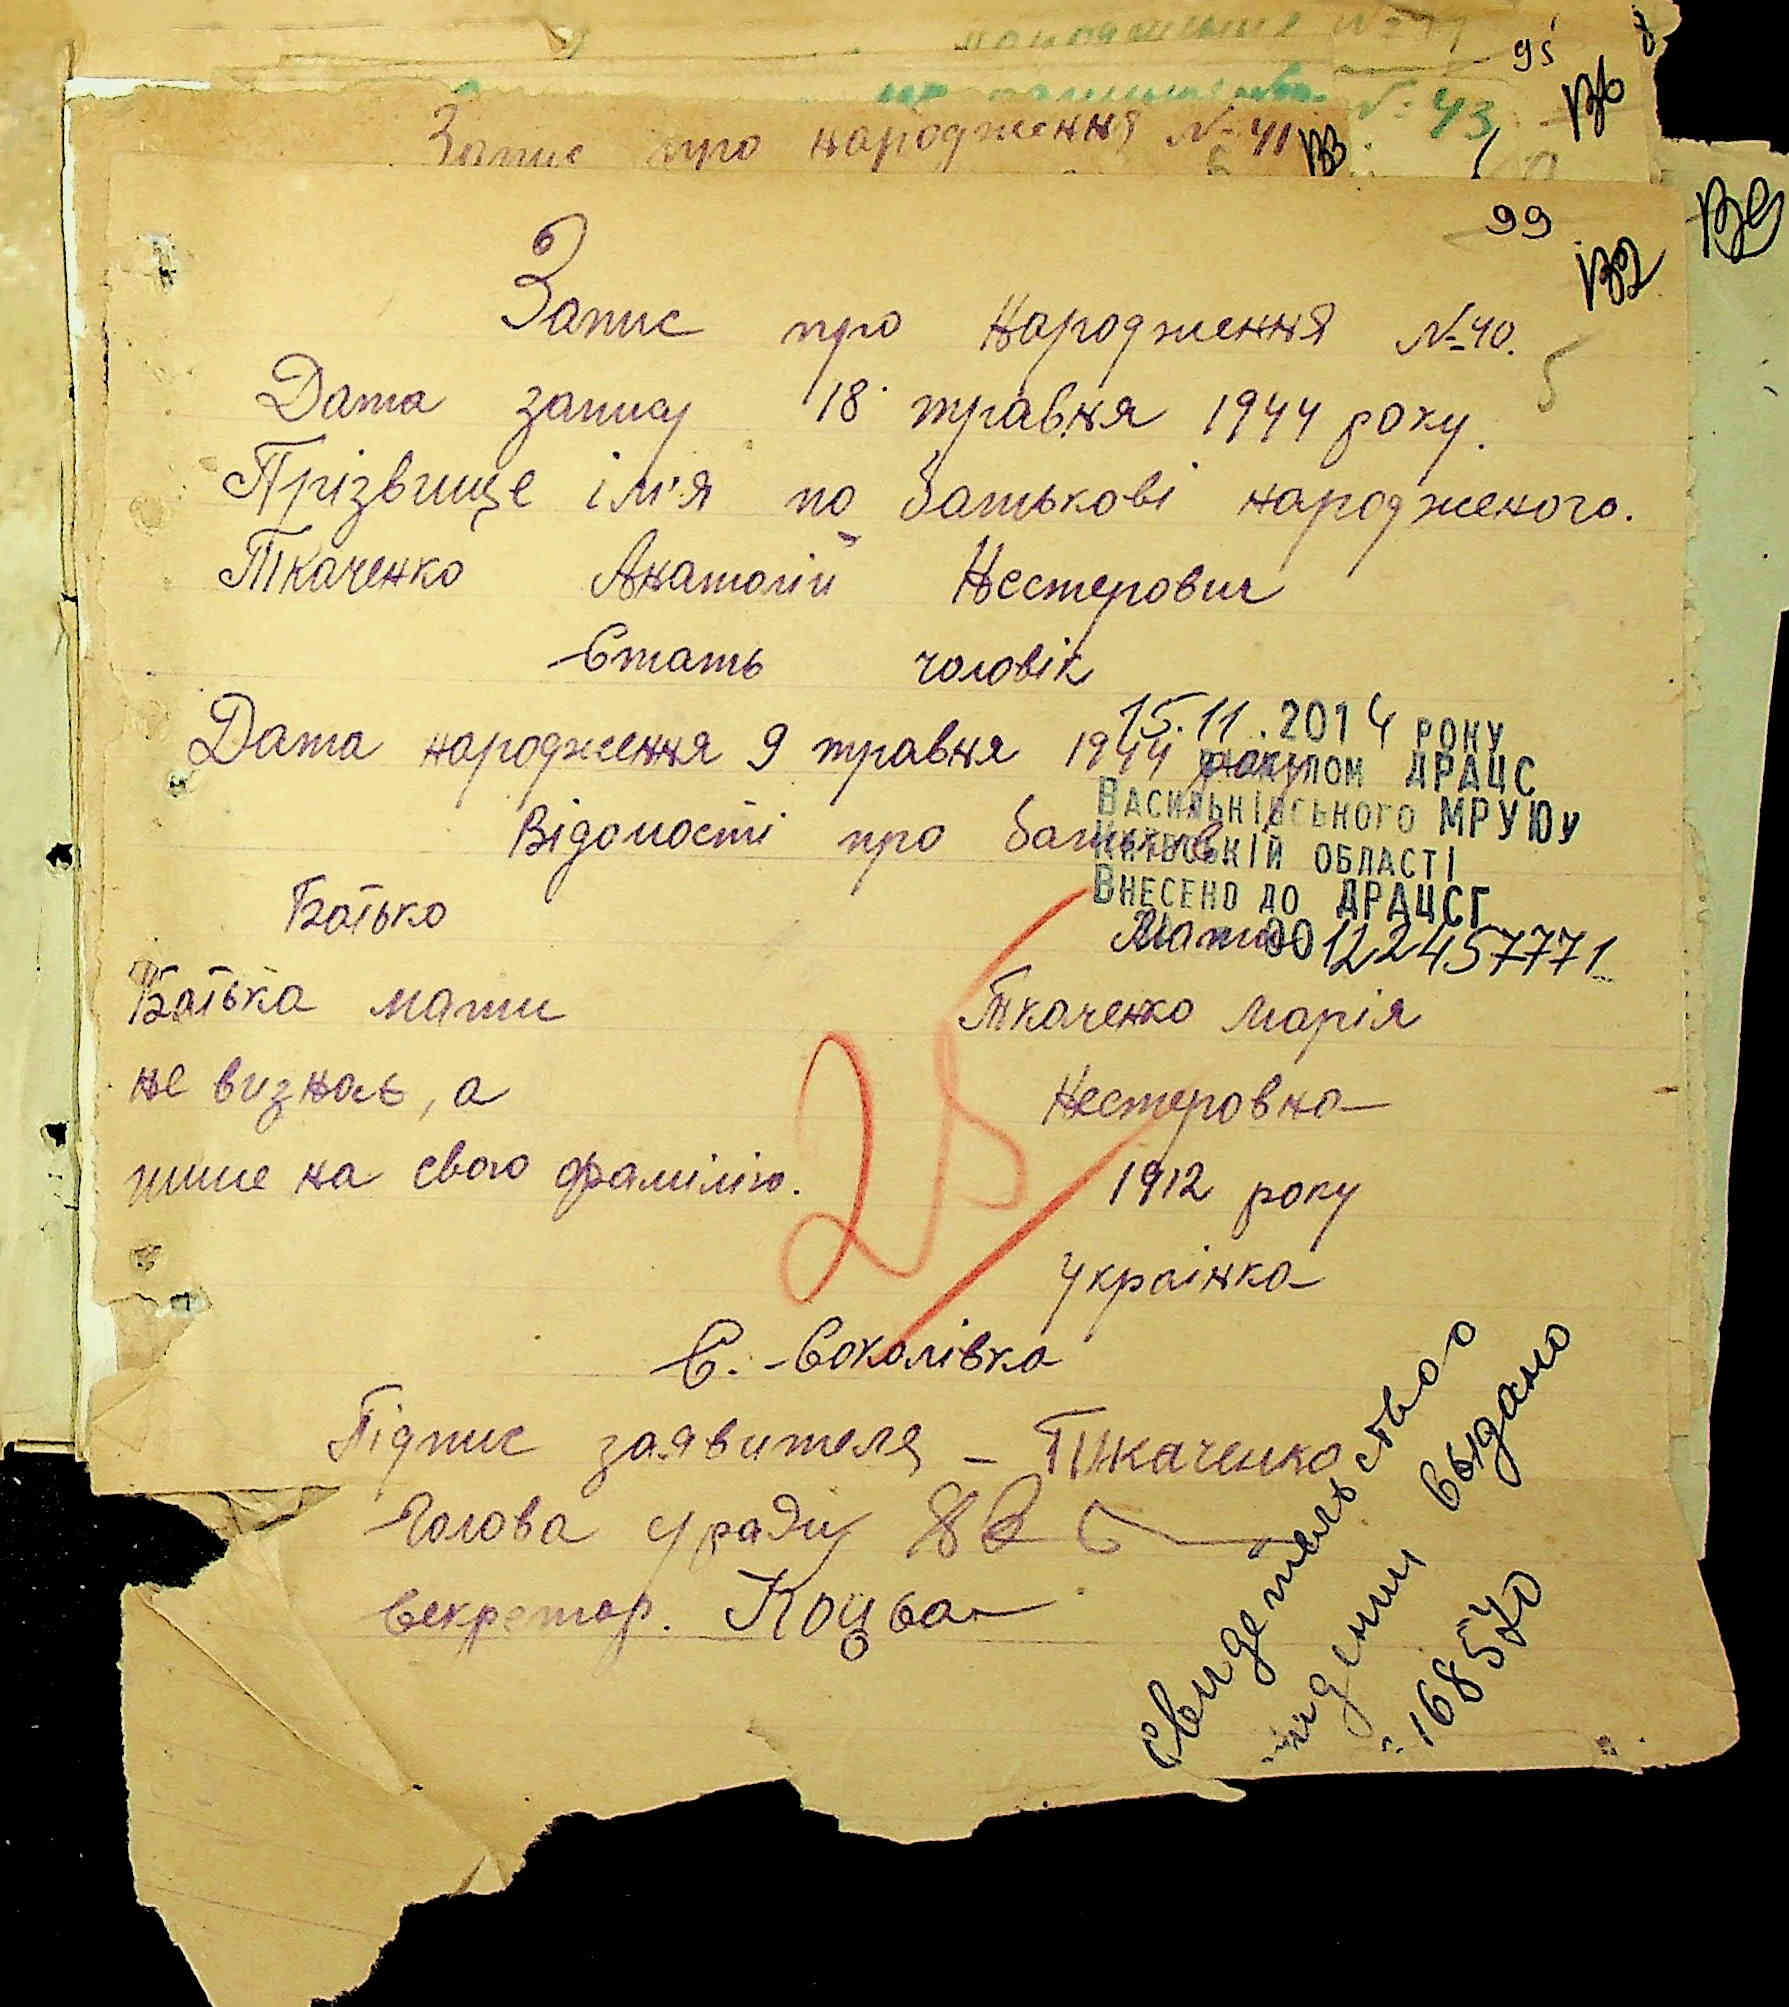 95
В6
№ 43
Запис про народження № 41
В3
99
В2
В9
Запис про Народження № 40.
5
Дата запису 18 травня 1944 року.
Прізвище ім'я по батькові народженого.
Ткаченко Анатолій Нестерович
Стать чоловік
15.11.2014 РОКУ
Дата народження 9 травня 1944 року
ДРАЦС
ВАСИЛЬКІВСЬКОГО МРУЮУ
Відомості про батьків
КИЇВСЬКІЙ ОБЛАСТІ
ВНЕСЕНО ДО ДРАЦСГ
Батько Мати
00122457771
Батька мати Ткаченко Марія
не визнає, а Нестеровна
пише на свою фамілію. 1912 року
25
Українка
С. Соколівка
Підпис заявителя – Ткаченко
Голова уряду
Секретар. Коцюба
Свидетельство о
выдано
168570